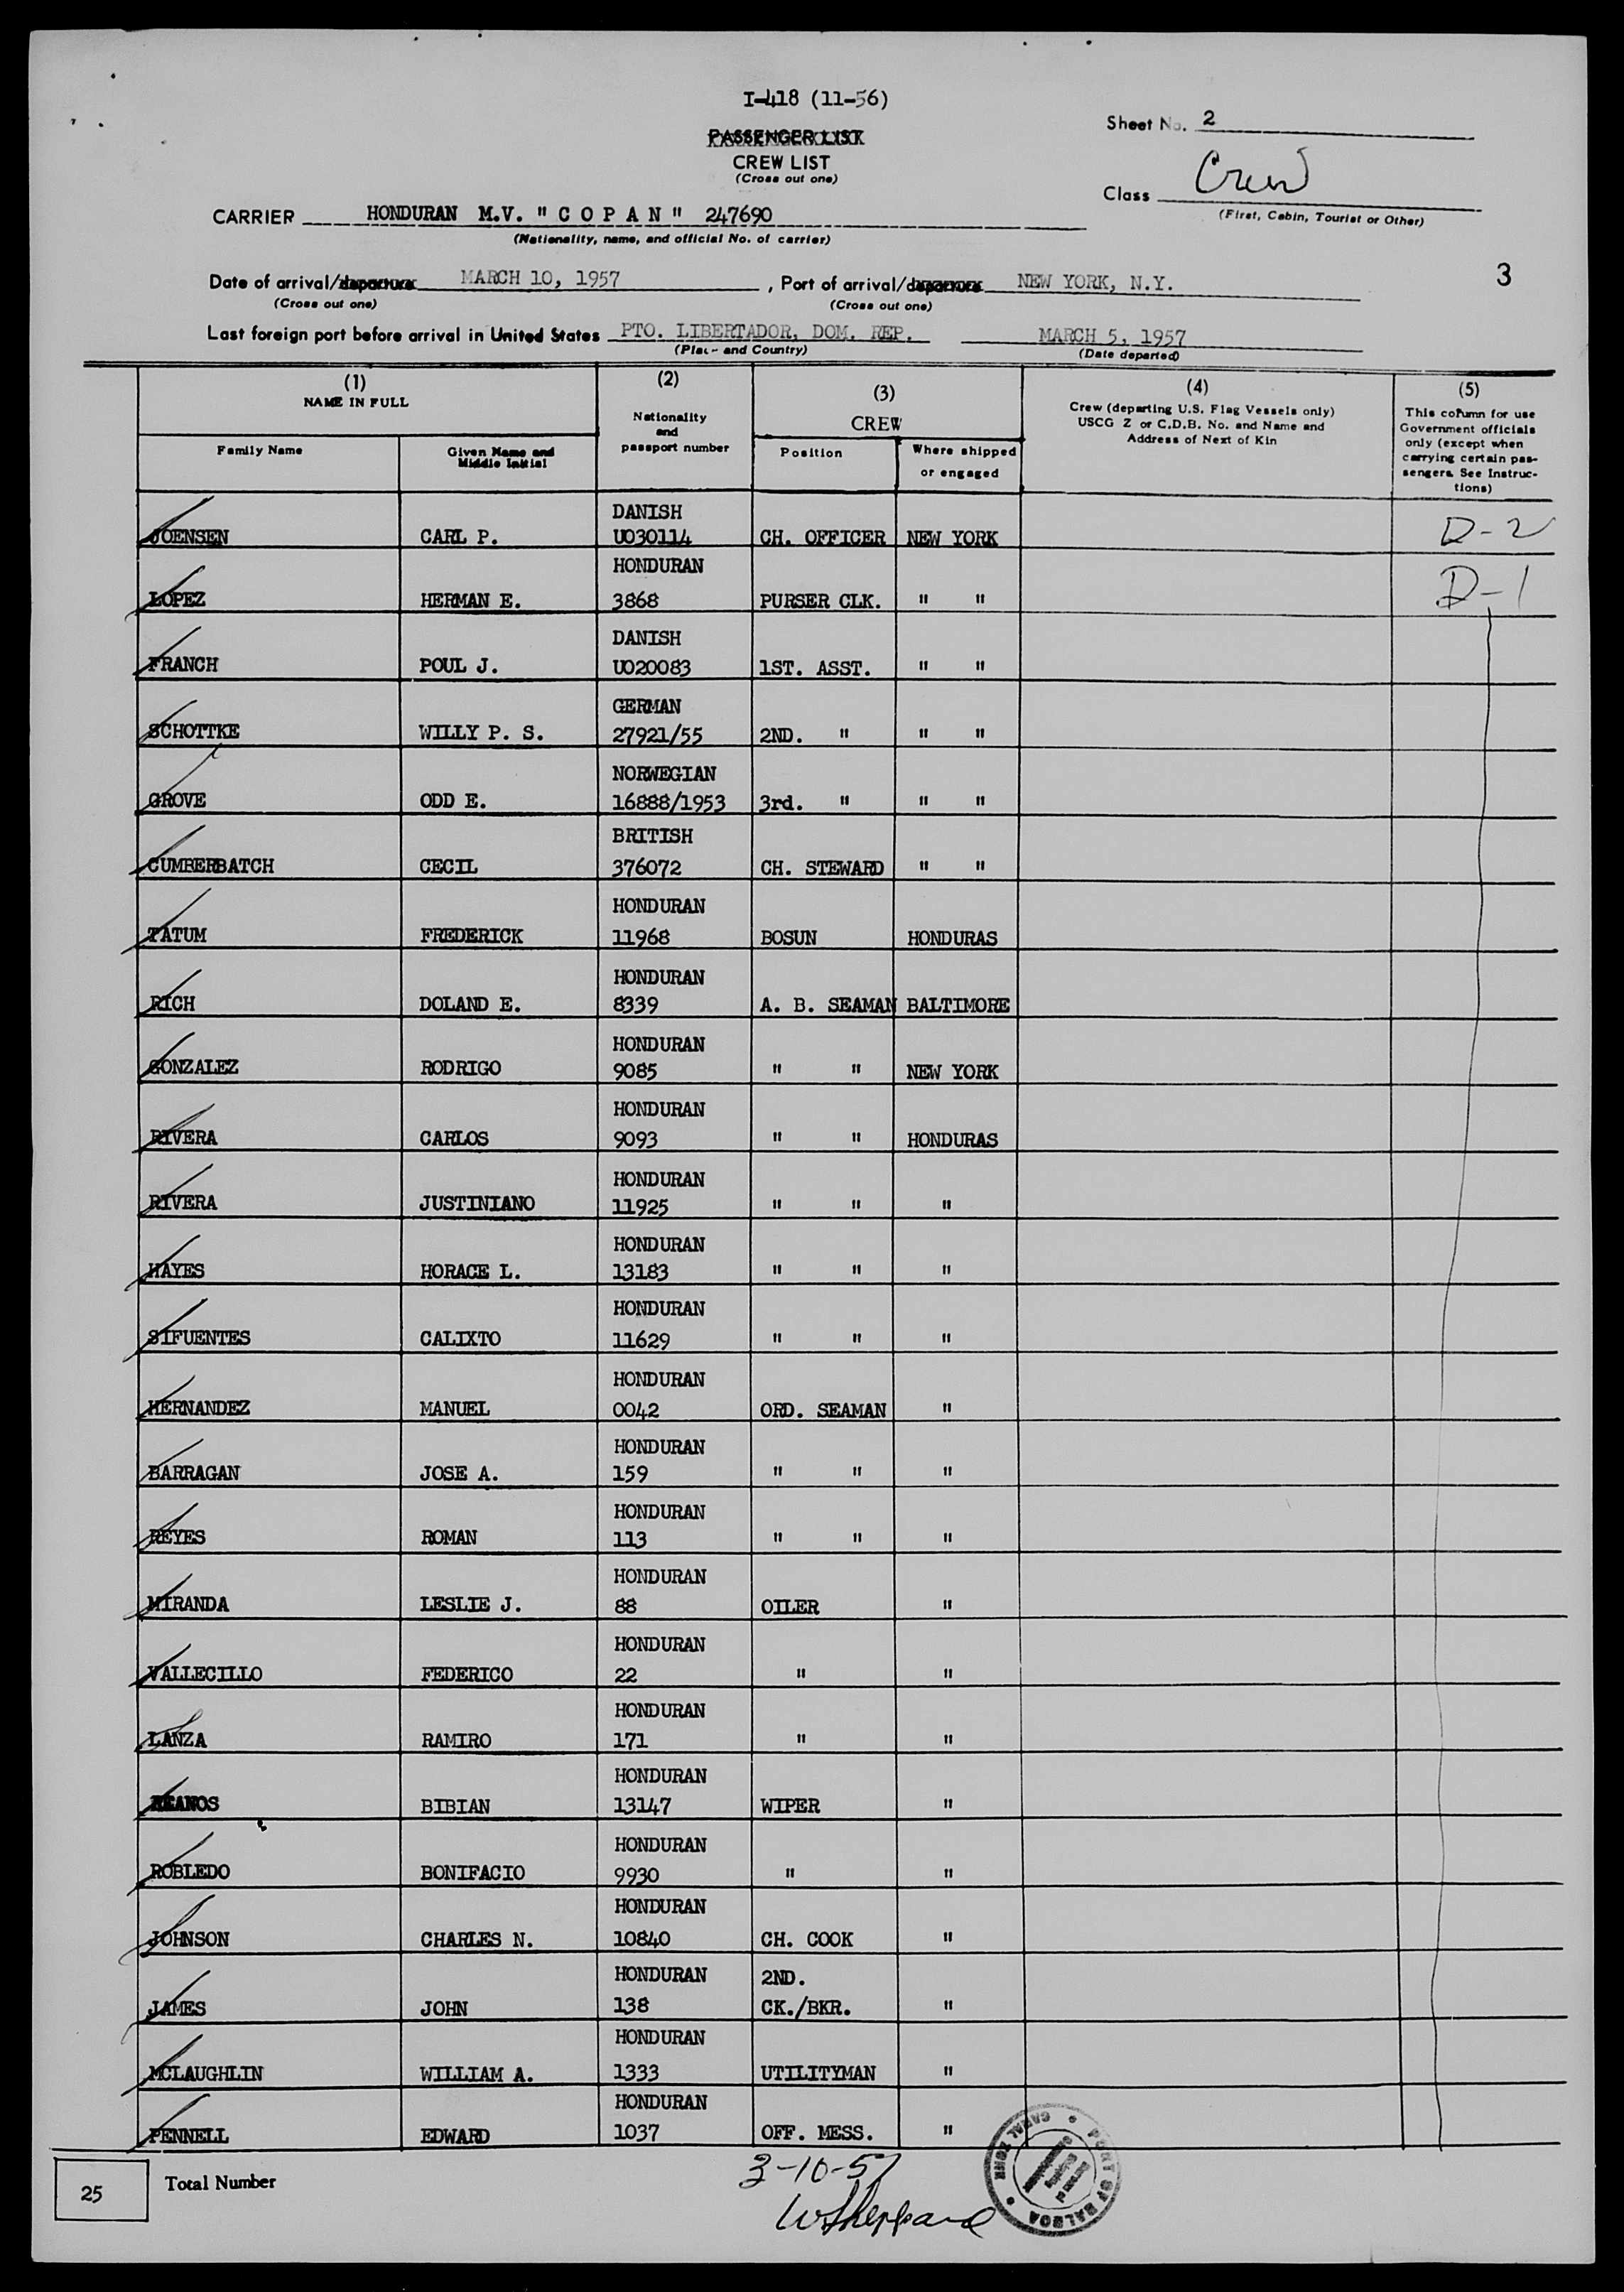 I-418 (11-56)
PASSENGER LIST
CREW LIST
(Cross out one)
Sheet No. 2
Class Crew
(First, Cabin, Tourist or Other)
CARRIER HONDURAN M.V. "C O P A N" 247690
(Nationality, name, and official No. of carrier)
3
Date of arrival/departure MARCH 10, 1957, Port of arrival/departure NEW YORK, N.Y.
(Cross out one) (Cross out one)
Last foreign port before arrival in United States PTO. LIBERTADOR, DOM. REP. MARCH 5, 1957
(Place and Country) (Date departed)
(1)
NAME IN FULL
Family Name
Given Name and
Middle Initial
(2)
Nationality
and
passport number
(3)
CREW
Position
Where shipped
or engaged
(4)
Crew (departing U.S. Flag Vessels only)
USCG Z or C.D.B. No. and Name and
Address of Next of Kin
(5)
This column for use
Government officials
only (except when
carrying certain pas-
sengers. See Instruc-
tions)
DANISH
JOENSEN CARL P. U030114 CH. OFFICER NEW YORK D-2
HONDURAN
LOPEZ HERMAN E. 3868 PURSER CLK. " " D-1
DANISH
FRANCH POUL J. U020083 1ST. ASST. " "
GERMAN
SCHOTTKE WILLY P. S. 27921/55 2ND. " " "
NORWEGIAN
GROVE ODD E. 16888/1953 3rd. " " "
BRITISH
CUMBERBATCH CECIL 376072 CH. STEWARD " "
HONDURAN
TATUM FREDERICK 11968 BOSUN HONDURAS
HONDURAN
RICH DOLAND E. 8339 A. B. SEAMAN BALTIMORE
HONDURAN
GONZALEZ RODRIGO 9085 " " NEW YORK
HONDURAN
RIVERA CARLOS 9093 " " HONDURAS
HONDURAN
RIVERA JUSTINIANO 11925 " " "
HONDURAN
HAYES HORACE L. 13183 " " "
HONDURAN
SIFUENTES CALIXTO 11629 " " "
HONDURAN
HERNANDEZ MANUEL 0042 ORD. SEAMAN "
HONDURAN
BARRAGAN JOSE A. 159 " " "
HONDURAN
REYES ROMAN 113 " " "
HONDURAN
MIRANDA LESLIE J. 88 OILER "
HONDURAN
VALLECILLO FEDERICO 22 " "
HONDURAN
LANZA RAMIRO 171 " "
HONDURAN
BIBIAN 13147 WIPER "
HONDURAN
ROBLEDO BONIFACIO 9930 " "
HONDURAN
JOHNSON CHARLES N. 10840 CH. COOK "
HONDURAN 2ND.
JAMES JOHN 138 CK./BKR. "
HONDURAN
MCLAUGHLIN WILLIAM A. 1333 UTILITYMAN "
HONDURAN
PENNELL EDWARD 1037 OFF. MESS. "
25 Total Number
3-10-57
WSheppard
PORT OF BALBOA
CANAL ZONE